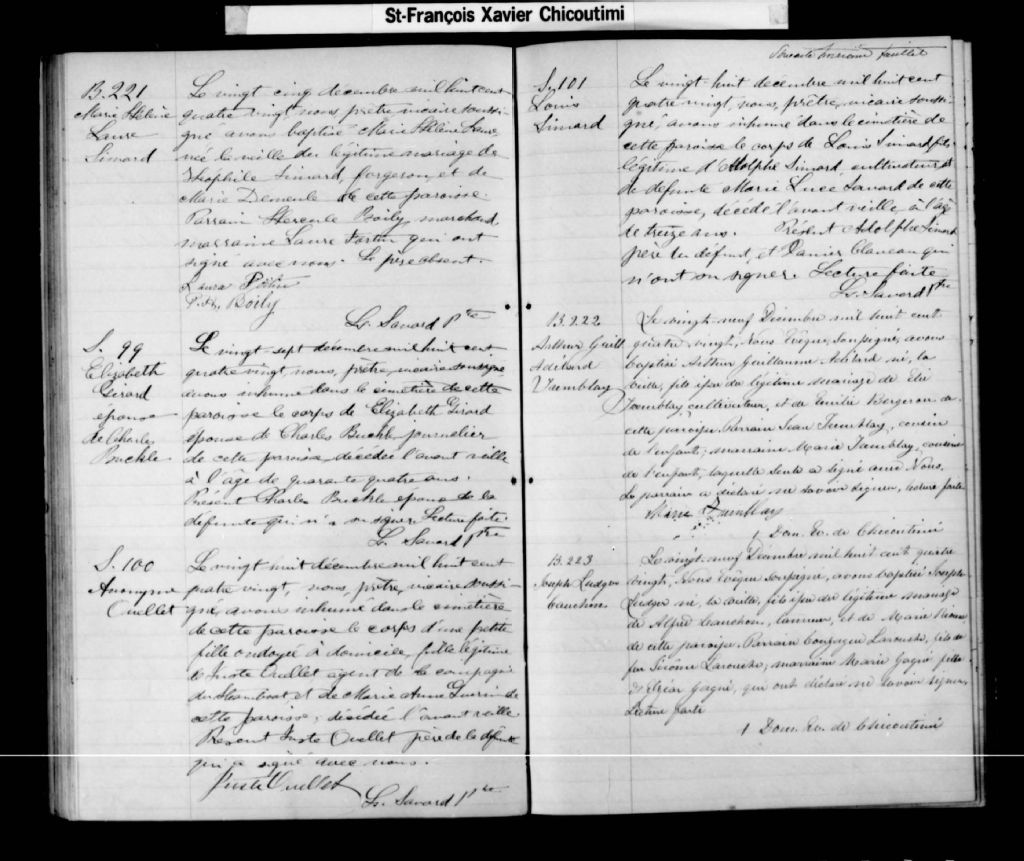 St-François Xavier Chicoutimi
B. 221
Marie Hélène
Laure
Simard
Le vingt cinq decembre mil huit cent
quatre vingt, nous prêtre vicaire soussi-
gné avons baptisé Marie Hélène Laure
née la veille du légitime mariage de
Théophile Simard, forgeron, et de
Marie Demeule de cette paroisse.
Parrain Hercule Boily, marchand
marraine Laure Fortin qui ont
signé avec nous. Le père absent.
Laura Fortin
Boily
Ls. Savard Ptre
S. 99
Elizabeth
Girard
epouse
de Charles
Buckle
Le vingt sept décembre mil huit cent
quatre vingt nous, prêtre, vicaire soussigné
avons inhumé dans le cimetière de cette
paroisse le corps de Elizabeth Girard
epouse de Charles Buckle, journalier
de cette paroisse, décédée l'avant veille
à l'âge de quarante quatre ans.
Présent Charles Buckle epoux de la
défunte qui n'a su signer. Lecture faite.
Ls. Savard Ptre
S. 100
Anonyme
Ouellet
Le vingt huit décembre mil huit cent
quatre vingt, nous, prêtre, vicaire soussi-
gné, avons inhumé dans le cimetière
de cette paroisse le corps d'une petite
fille ondoyée à domicile, fille légitime
d'Juste Ouellet agent de la compagnie
du Steamboat et de Marie Anne Guerin de
cette paroisse; décédée l'avant veille
Présent Juste Ouellet père de la défunte
qui a signé avec nous.
Juste Ouellet
Ls. Savard Ptre
feuillet
S. 101
Louis
Simard
Le vingt huit decembre mil huit cent
quatre vingt, nous, prêtre, vicaire soussi-
gné, avons inhumé dans le cimetière de
cette paroisse le corps de Louis Simard fils
légitime d'Adolphe Simard, cultivateur et
de defunte Marie Luce Savard de cette
paroisse, décédé l'avant veille à l'âge
de treize ans. Présent Adolphe Simard
père du défunt, et qui
n'ont su signer. Lecture faite
Ls. Savard Ptre
B. 222
Arthur Guill
Adélard
Tremblay
Le vingt-neuf Décembre mil huit cent
quatre vingt, Nous Evêque Soussigné, avons
baptisé Arthur Guillaume Adélard né, la
veille, fils issu du légitime mariage de Elie
Tremblay cultivateur, et de Emilie Bergeron de
cette paroisse. Parrain Jean Tremblay, cousin
de l'enfant; marraine Marie Tremblay, cousine
de l'enfant, laquelle seule a signé avec Nous.
Le parrain a déclaré ne savoir signer, lecture faite
Marie Tremblay
† Dom. Ev. de Chicoutimi
B. 223
Joseph Ludger
Cauchon
Le vingt-neuf Décembre mil huit cent quatre
vingt, Nous Evêque Soussigné, avons baptisé Joseph
Ludger né, la veille, fils issu du légitime mariage
de Alfred Cauchon, tanneur, et de Marie
de cette paroisse. Parrain Larouche, fils de
feu Jérôme Larouche; marraine Marie Gagné, fille
Gagné, qui ont déclaré ne savoir signer.
Lecture faite
† Dom. Ev. de Chicoutimi